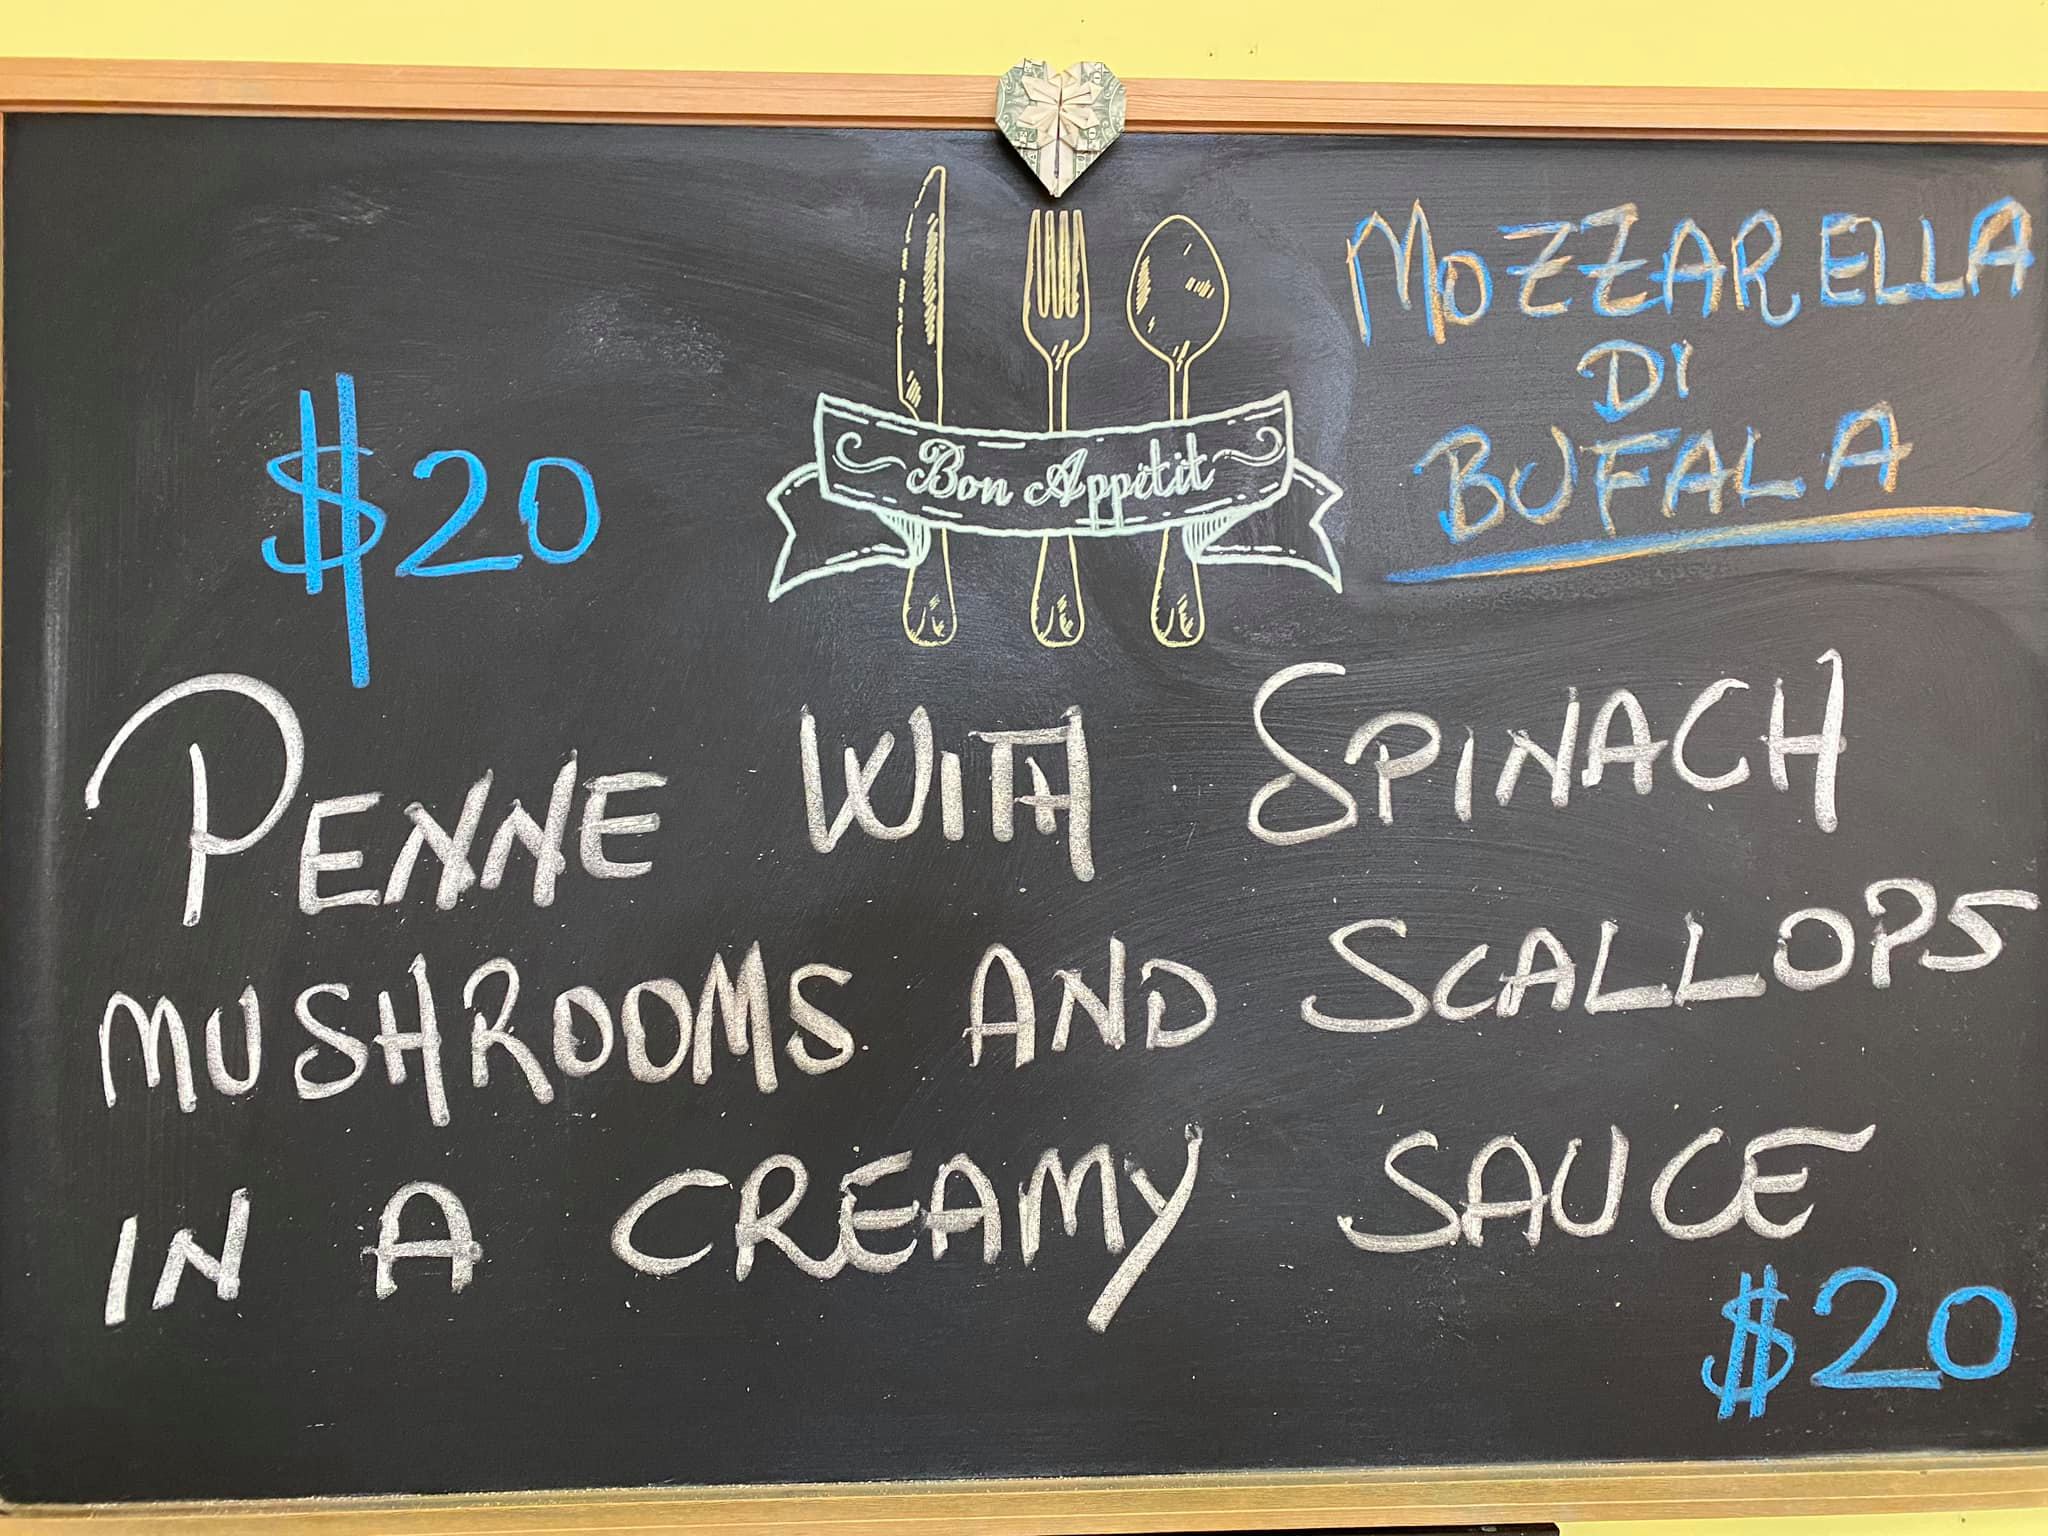 MOZZARELLA
DI
BUFALA
$20
Bon Appétit
PENNE WITH SPINACH
MUSHROOMS AND SCALLOPS
IN A CREAMY SAUCE
$20